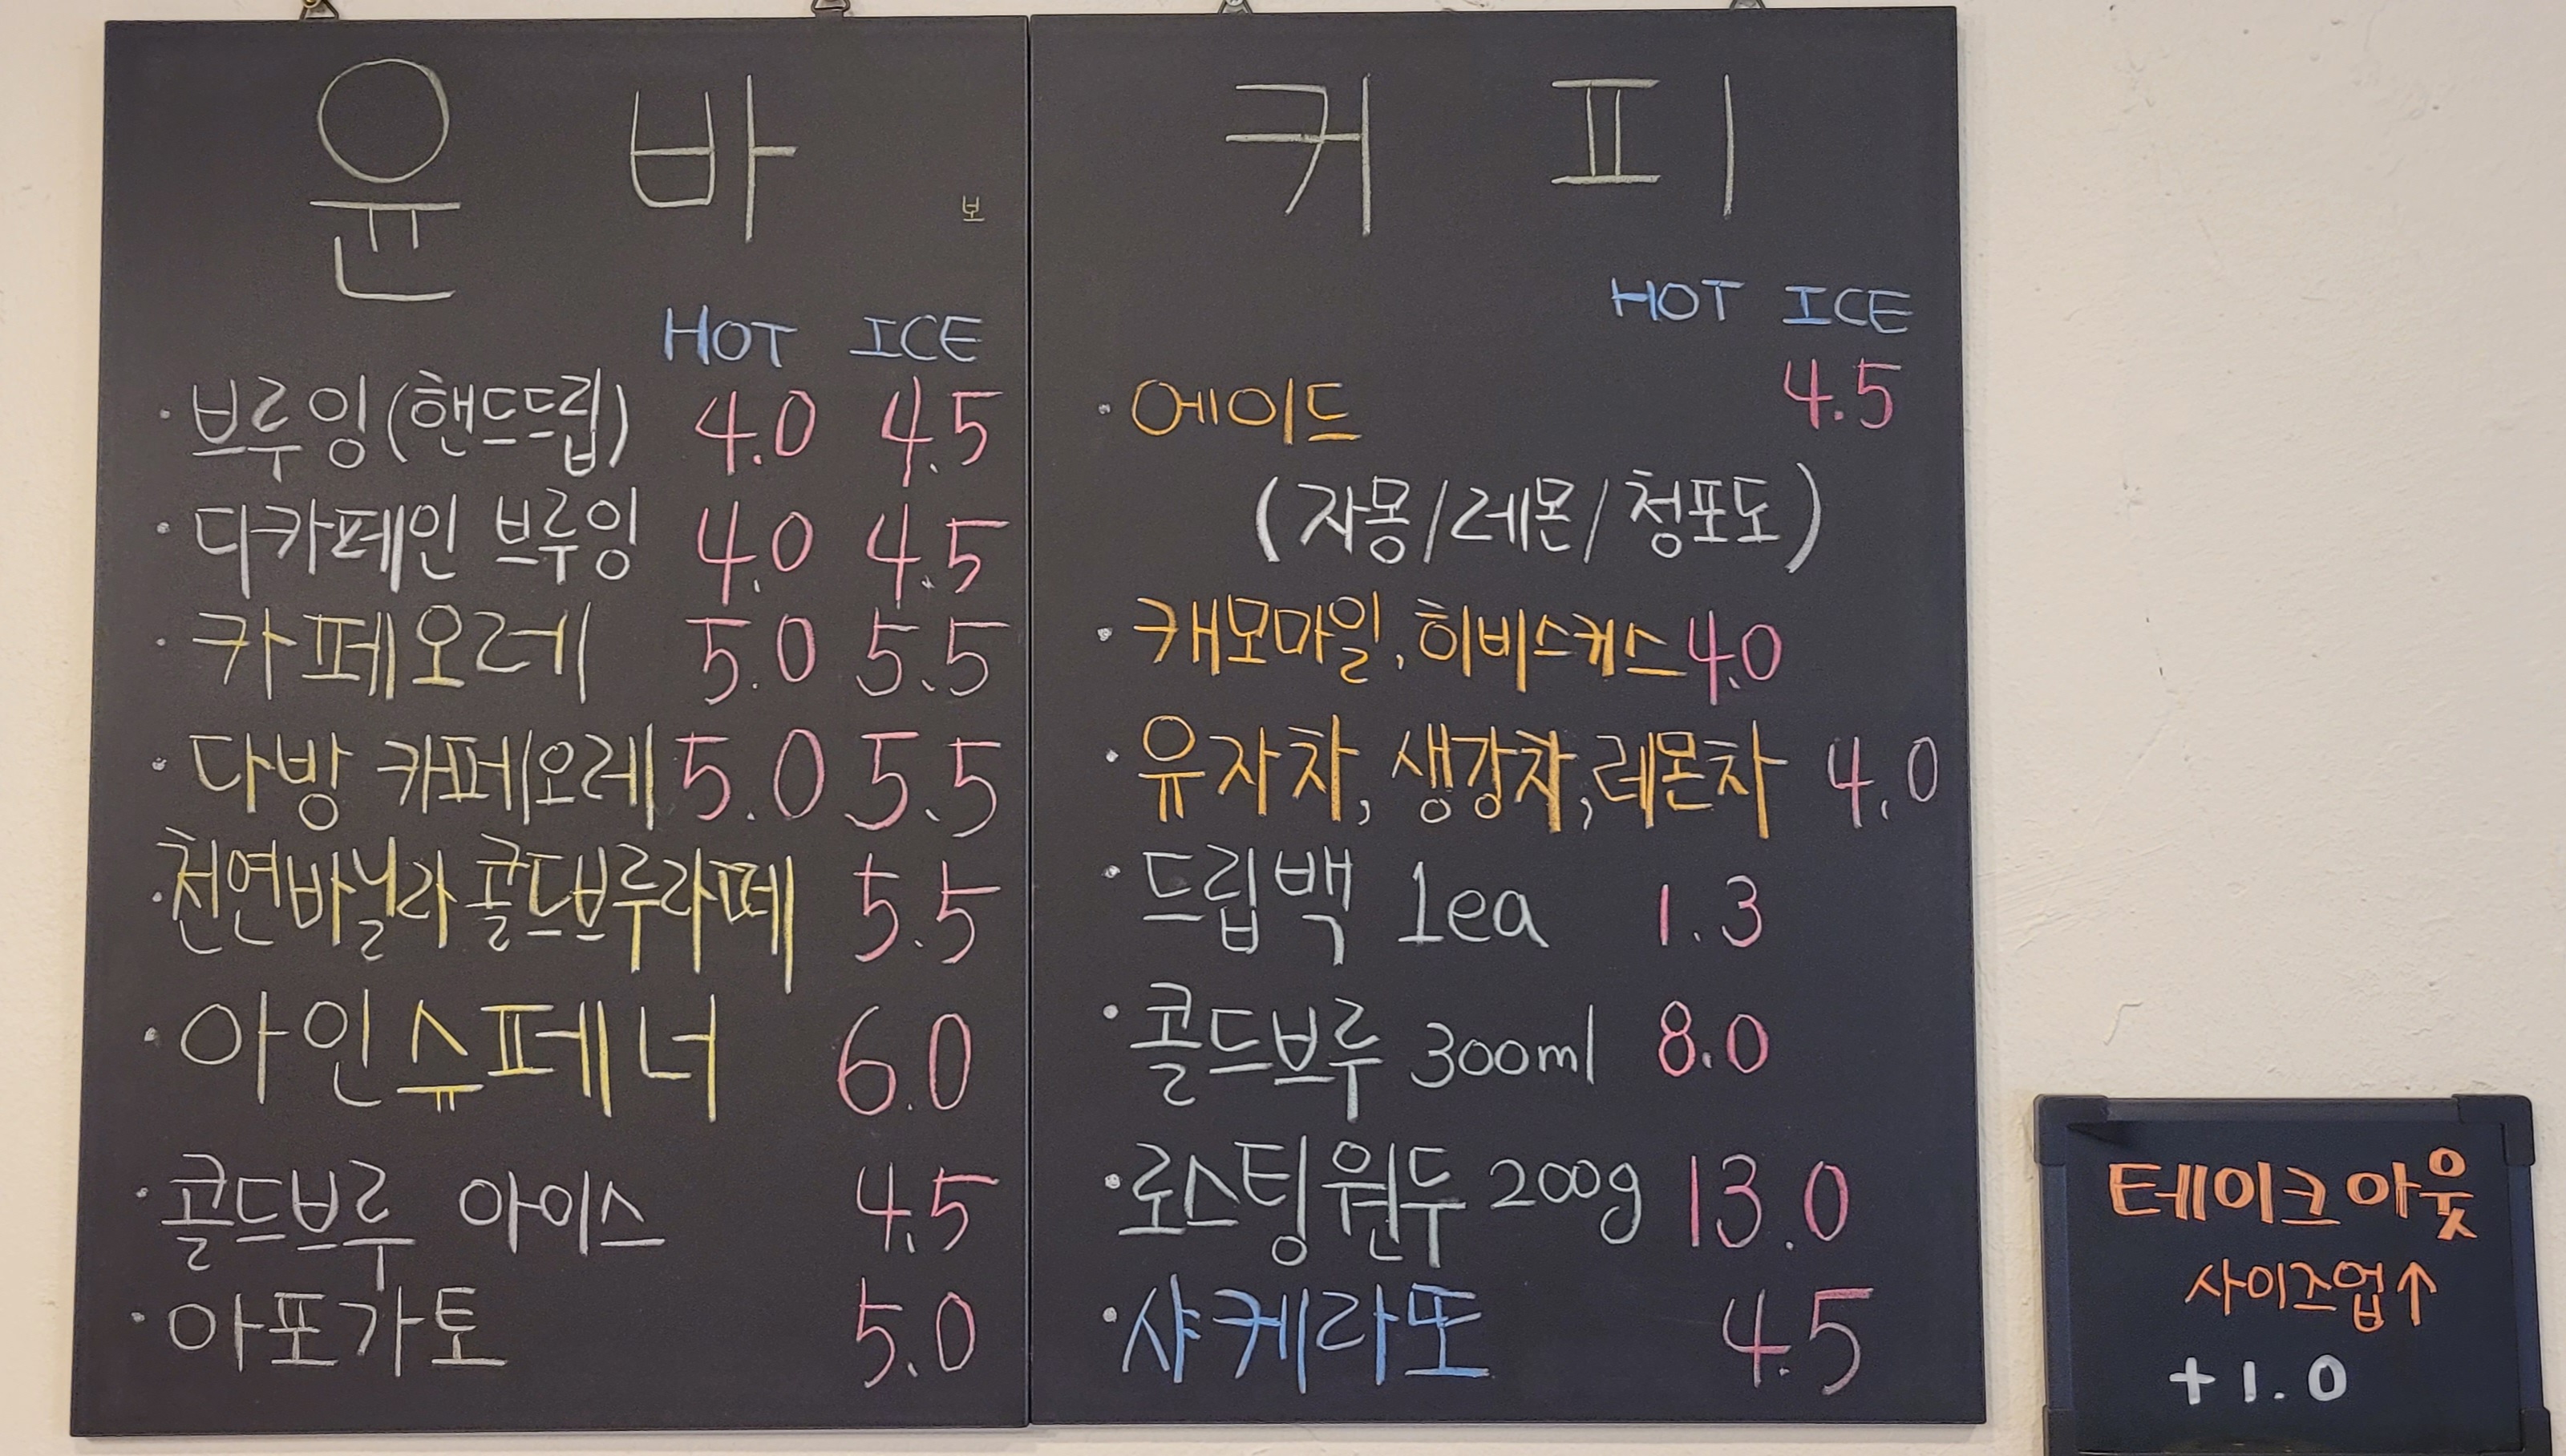 윤 바
보
HOT ICE
·브루잉(핸드드립) 4.0 4.5
·디카페인 브루잉 4.0 4.5
·카페오레 5.0 5.5
·다방 카페오레 5.0 5.5
·천연바닐라 콜드브루라떼 5.5
·아인슈페너 6.0
·콜드브루 아이스 4.5
·아포가토 5.0
커 피
HOT ICE
·에이드 4.5
(자몽/레몬/청포도)
·캐모마일, 히비스커스 4.0
·유자차, 생강차, 레몬차 4.0
·드립백 1ea 1.3
·콜드브루 300ml 8.0
·로스팅원두 200g 13.0
·샤케라또 4.5
테이크아웃
사이즈업↑
+1.0